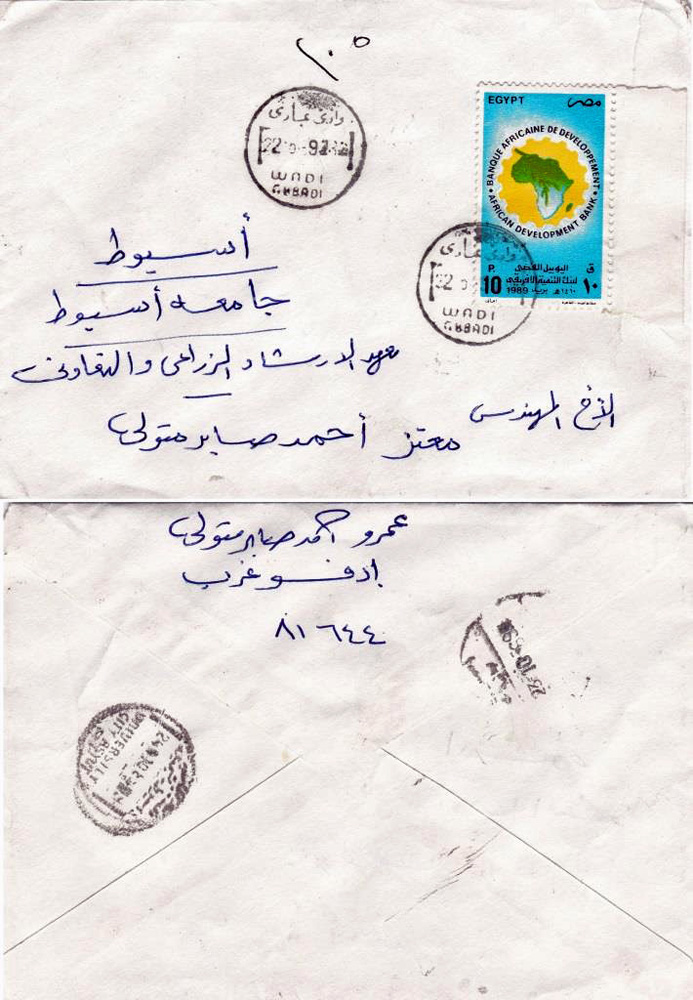 ٢٠٥
وادى عبادى
22
WADI
ABBADI
EGYPT مصر
BANQUE AFRICAINE DE DEVELOPPEMENT
AFRICAN DEVELOPMENT BANK
اليوبيل الفضى
لبنك التنمية الأفريقى
P. 10
ق ١٠
1989
وادى عبادى
22
WADI
ABBADI
أسيوط
جامعه أسيوط
معهد الارشاد الزراعى والتعاونى
الأخ المهندس
معتز أحمد صابر متولى
عمرو احمد صابر متولى
ادفو غرب
٨١٦٤٤
UNIVERSITY
CITY ASYUT